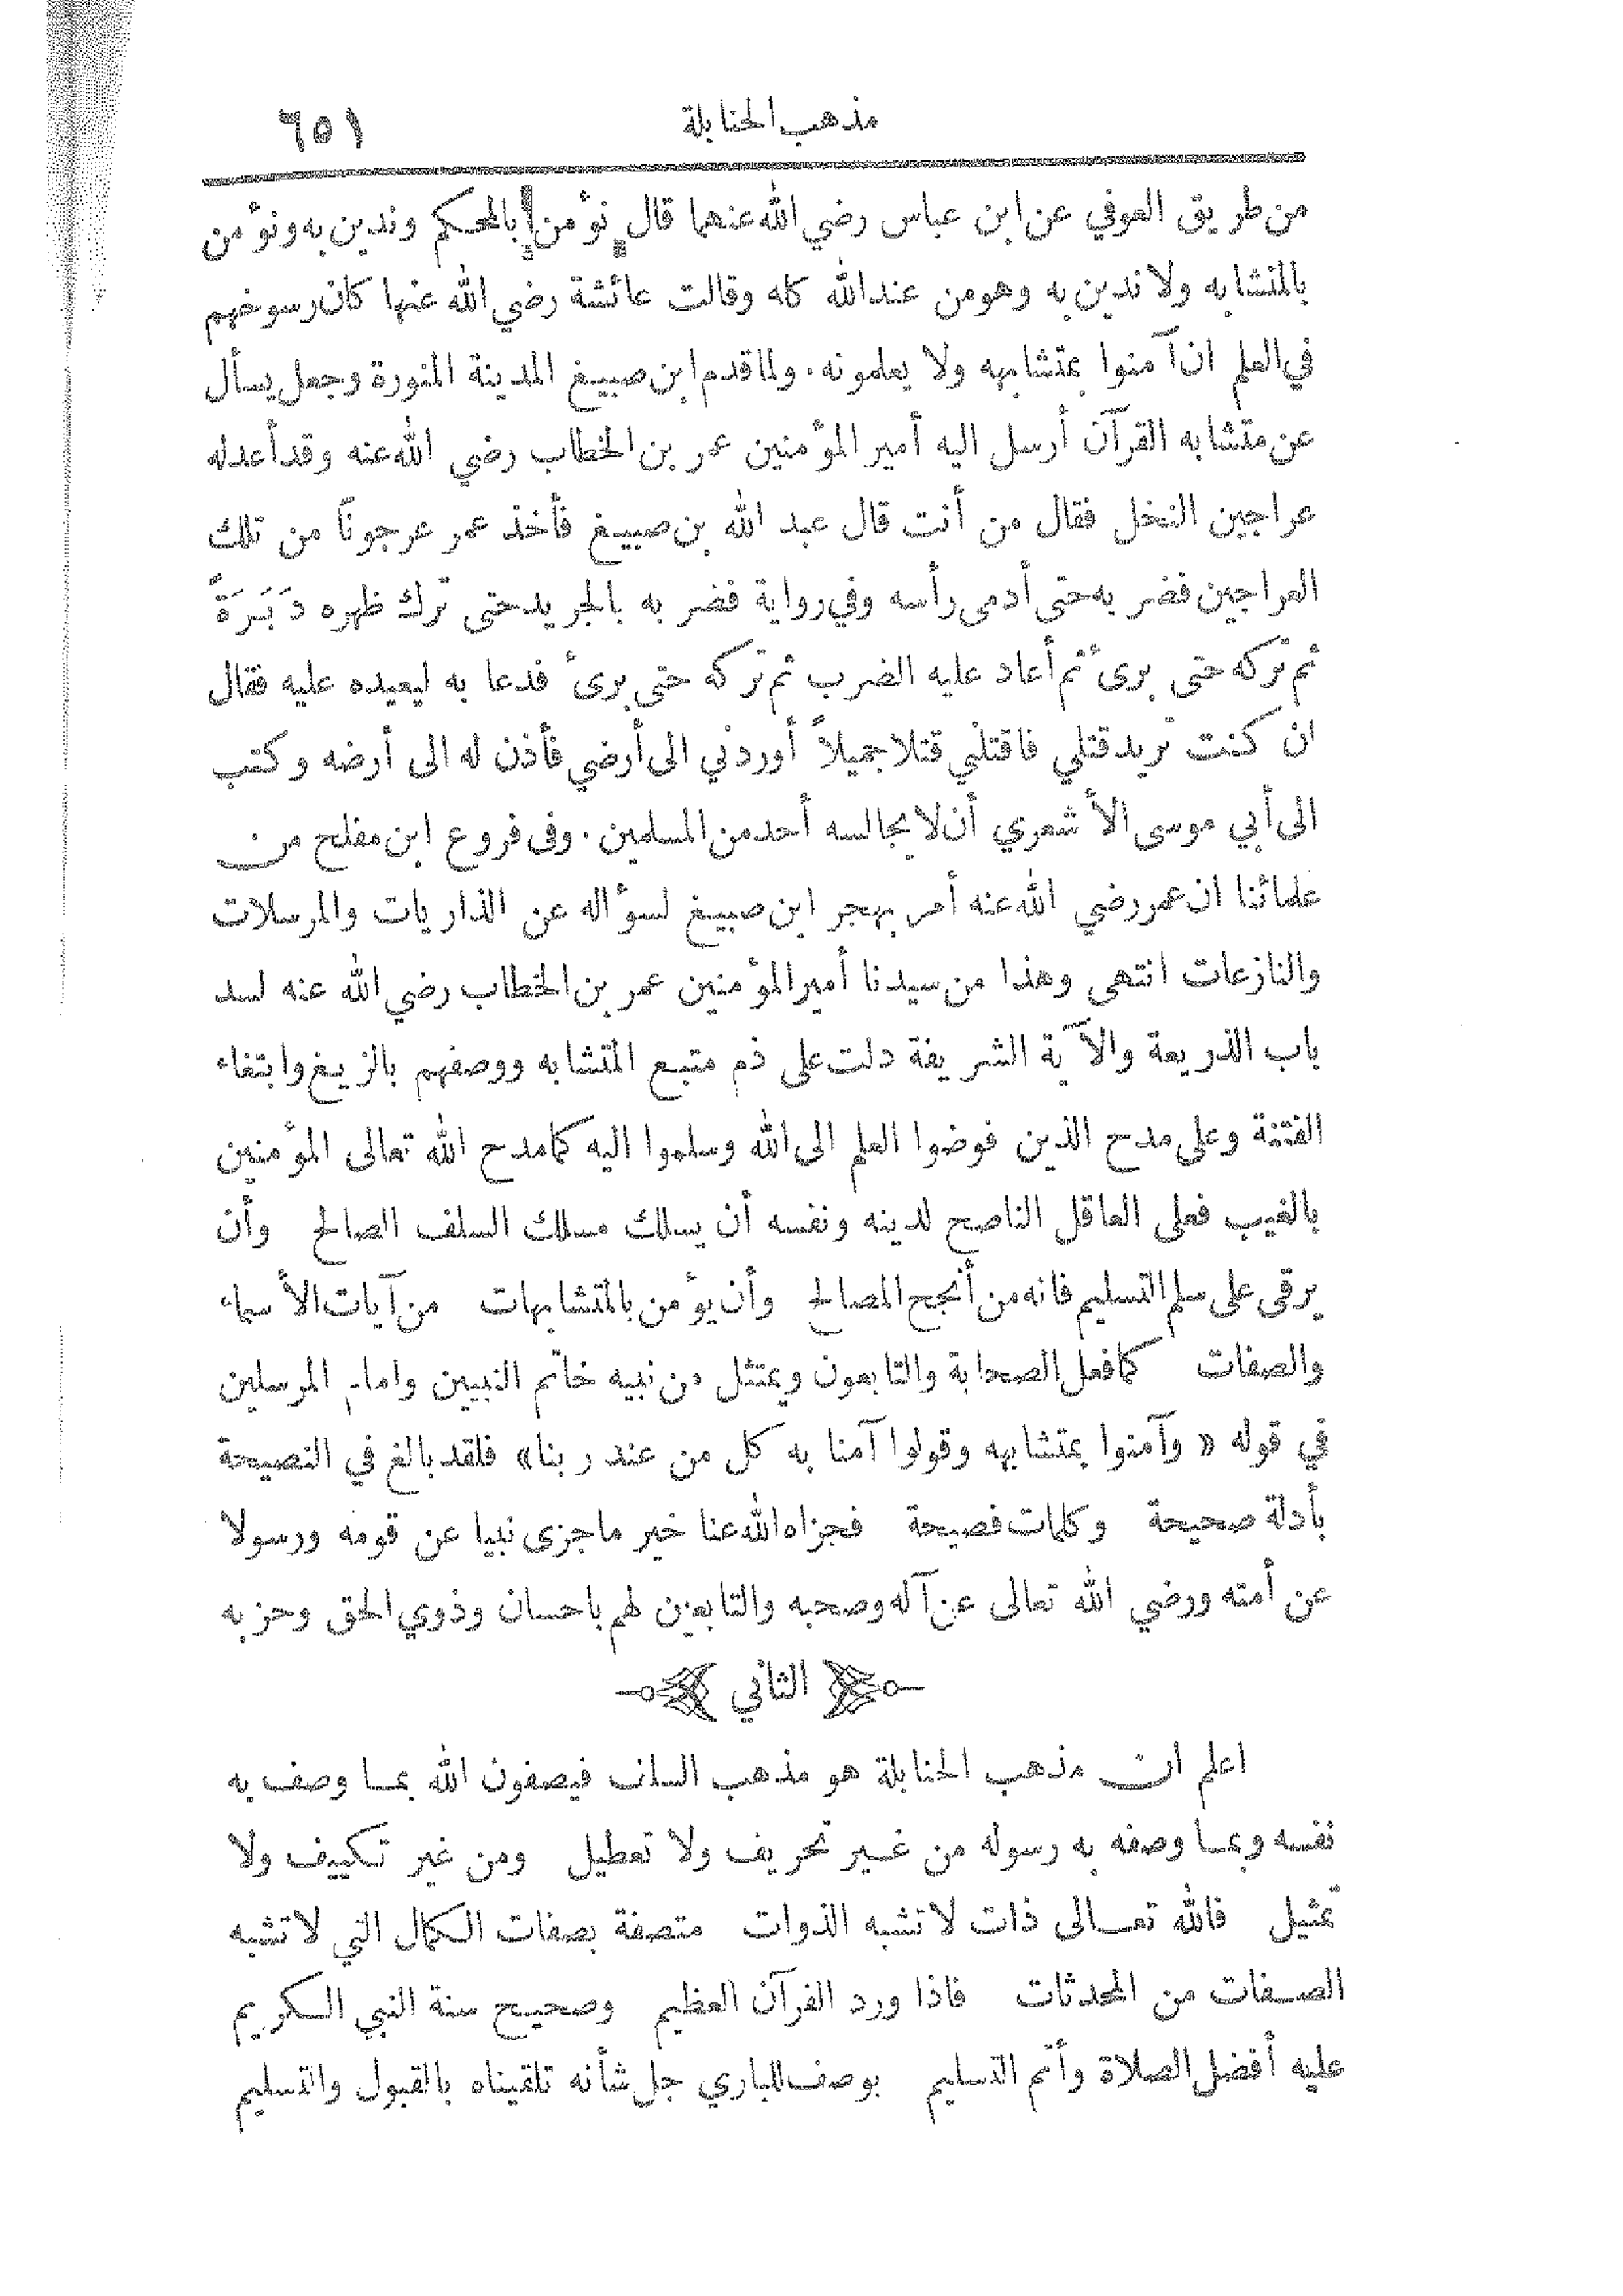 مذهب الحنابلة ٦٥١
من طريق العوفي عن ابن عباس رضي الله عنهما قال نؤمن بالمحكم وندين به ونؤمن
بالمتشابه ولا ندين به وهو من عند الله كله وقالت عائشة رضي الله عنها كان رسوخهم
في العلم ان آمنوا بمتشابهه ولا يعلمونه . ولما قدم ابن صبيغ المدينة المنورة وجعل يسأل
عن متشابه القرآن أرسل اليه أمير المؤمنين عمر بن الخطاب رضي الله عنه وقد أعد له
عراجين النخل فقال من أنت قال عبد الله بن صبيغ فأخذ عمر عرجوناً من تلك
العراجين فضربه حتى أدمى رأسه وفي رواية فضربه بالجريد حتى ترك ظهره دَبَرَةً
ثم تركه حتى برئ ثم أعاد عليه الضرب ثم تركه حتى برئ فدعا به ليعيده عليه فقال
ان كنت تريد قتلي فاقتلني قتلا جميلاً أو ردني الى أرضي فأذن له الى أرضه وكتب
الى أبي موسى الأشعري أن لا يجالسه أحد من المسلمين . وفى فروع ابن مفلح من
علمائنا ان عمر رضي الله عنه أمر بهجر ابن صبيغ لسؤاله عن الذاريات والمرسلات
والنازعات انتهى وهذا من سيدنا أمير المؤمنين عمر بن الخطاب رضي الله عنه لسد
باب الذريعة والآية الشريفة دلت على ذم متبع المتشابه ووصفهم بالزيغ وابتغاء
الفتنة وعلى مدح الذين فوضوا العلم الى الله وسلموا اليه كما مدح الله تعالى المؤمنين
بالغيب فعلى العاقل الناصح لدينه ونفسه أن يسلك مسلك السلف الصالح وأن
يرقى على سلم التسليم فانه من أنجح المصالح وأن يؤمن بالمتشابهات من آيات الأسماء
والصفات كما فعل الصحابة والتابعون ويمتثل من نبيه خاتم النبيين وامام المرسلين
في قوله « وآمنوا بمتشابهه وقولوا آمنا به كل من عند ربنا» فلقد بالغ في النصيحة
بأدلة صحيحة وكلمات فصيحة فجزاه الله عنا خير ما جزى نبيا عن قومه ورسولا
عن أمته ورضي الله تعالى عن آله وصحبه والتابعين لهم باحسان وذوي الحق وحزبه
الثاني
اعلم ان مذهب الحنابلة هو مذهب السلف فيصفون الله بما وصف به
نفسه وبما وصفه به رسوله من غير تحريف ولا تعطيل ومن غير تكييف ولا
تمثيل فالله تعالى ذات لا تشبه الذوات متصفة بصفات الكمال التي لا تشبه
الصفات من المحدثات فاذا ورد القرآن العظيم وصحيح سنة النبي الكريم
عليه أفضل الصلاة وأتم التسليم بوصف للباري جل شأنه تلقيناه بالقبول والتسليم